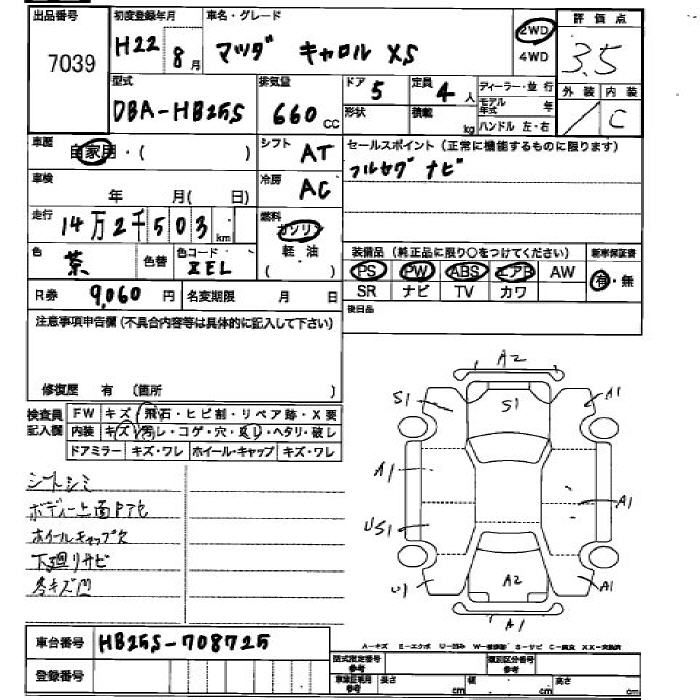 出品番号
7039
初度登録年月
H22 8月
車名・グレード
マツダ キャロル XS
2WD
4WD
評価点
3.5
外装 内装
/ C
型式
DBA-HB25S
排気量
660 CC
ドア 5
定員 4 人
形状
積載 kg
ディーラー・並行
モデル年式 年
ハンドル 左・右
車歴
自家用・( )
シフト
AT
セールスポイント(正常に機能するものに限ります)
フルセグ ナビ
車検
年 月( 日)
冷房
AC
走行
14万2千503 km
燃料
ガソリン
軽油
( )
色
茶
色替
色コード
ZEL
装備品(純正品に限り○をつけてください)
PS PW ABS エアB AW
SR ナビ TV カワ
新車保証書
有・無
R券 9,060 円
名変期限 月 日
後日品
注意事項申告欄(不具合内容等は具体的に記入して下さい)
修復歴 有 (箇所 )
検査員記入欄
FW キズ・飛石・ヒビ割・リペア跡・X要
内装 キズ・汚レ・コゲ・穴・
・ヘタリ・破レ
ドアミラー キズ・ワレ ホイール・キャップ キズ・ワレ
シートシミ
ボディー上面
ホイールキャップ欠
下廻りサビ
各キズ凹
A2
S1
S1
A1
A1
A1
US1
U1
A2
A1
A1
車台番号
HB25S-708725
登録番号
A-キズ E-エクボ U-凹み W-補修跡 S-サビ C-腐食 XX-交換済
型式指定番号
参考
類別区分番号
参考
車検証記載用
参考
長さ cm
幅 cm
高さ cm